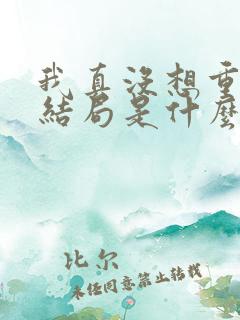 我真没想重
结局是什麽
比尔
未经同意禁止转载